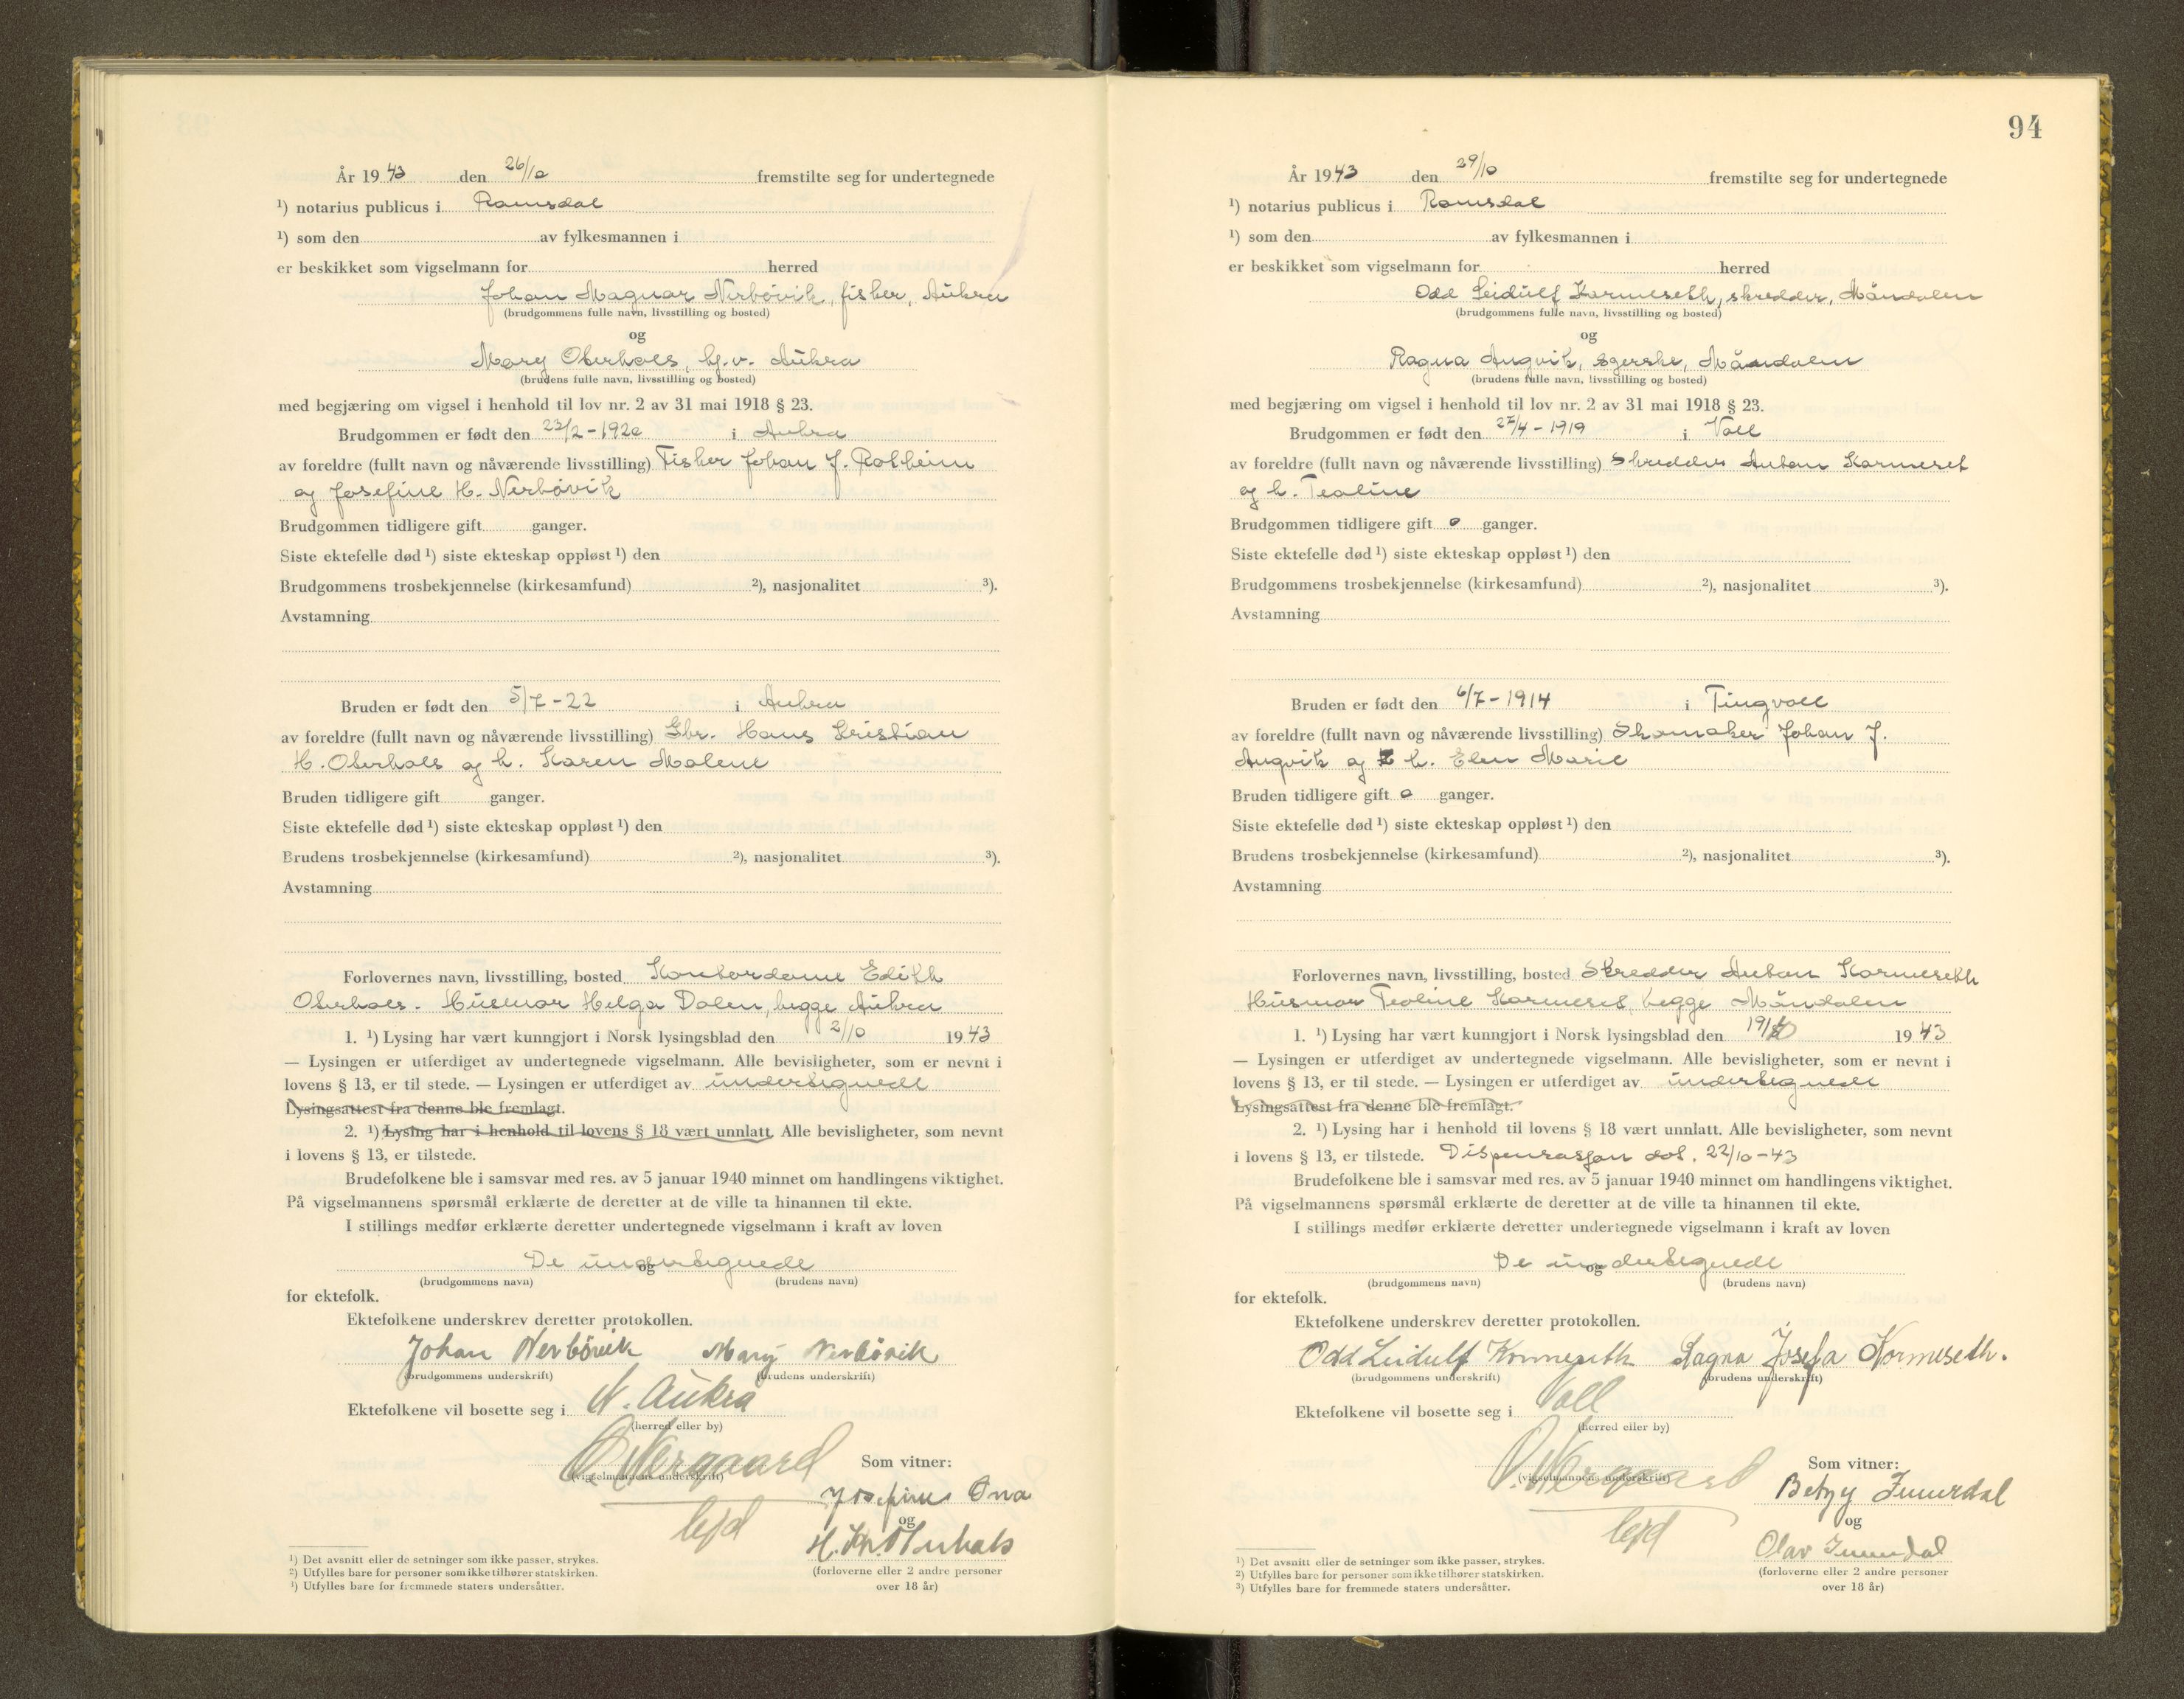 År 1943 den 26/10 fremstilte seg for undertegnede
¹) notarius publicus i Romsdal
¹) som den av fylkesmannen i
er beskikket som vigselmann for herred
Johan Magnar Nerbövik, fisker, Aukra
(brudgommens fulle navn, livsstilling og bosted)
og
Mary Oterhals, hj.v. Aukra
(brudens fulle navn, livsstilling og bosted)
med begjæring om vigsel i henhold til lov nr. 2 av 31 mai 1918 § 23.
Brudgommen er født den 23/2 - 1920 i Aukra
av foreldre (fullt navn og nåværende livsstilling) Fisker Johan J. Rotheim
og Josefine H. Nerbövik
Brudgommen tidligere gift ganger.
Siste ektefelle død ¹) siste ekteskap oppløst ¹) den
Brudgommens trosbekjennelse (kirkesamfund) ²), nasjonalitet ³).
Avstamning
Bruden er født den 5/7 - 22 i Aukra
av foreldre (fullt navn og nåværende livsstilling) Gbr. Hans Kristian
H. Oterhals og h. Karen Malene
Bruden tidligere gift ganger.
Siste ektefelle død ¹) siste ekteskap oppløst ¹) den
Brudens trosbekjennelse (kirkesamfund) ²), nasjonalitet ³).
Avstamning
Forlovernes navn, livsstilling, bosted Kontordame Edith
Oterhals. Husmor Helga Dalen, begge Aukra
1. ¹) Lysing har vært kunngjort i Norsk lysingsblad den 2/10 1943
— Lysingen er utferdiget av undertegnede vigselmann. Alle bevisligheter, som er nevnt i
lovens § 13, er til stede. — Lysingen er utferdiget av undertegnede
Lysingsattest fra denne ble fremlagt.
2. ¹) Lysing har i henhold til lovens § 18 vært unnlatt. Alle bevisligheter, som nevnt
i lovens § 13, er tilstede.
Brudefolkene ble i samsvar med res. av 5 januar 1940 minnet om handlingens viktighet.
På vigselmannens spørsmål erklærte de deretter at de ville ta hinannen til ekte.
I stillings medfør erklærte deretter undertegnede vigselmann i kraft av loven
De undertegnede
og
(brudgommens navn) (brudens navn)
for ektefolk.
Ektefolkene underskrev deretter protokollen.
Johan Nerbövik Mary Nerbövik
(brudgommens underskrift) (brudens underskrift)
Ektefolkene vil bosette seg i N. Aukra
(herred eller by)
O. Nergaard
(vigselmannens underskrift) Som vitner:
Josefine Ona
bfd og
H. Kr. Oterhals
(forloverne eller 2 andre personer
over 18 år)
¹) Det avsnitt eller de setninger som ikke passer, strykes.
²) Utfylles bare for personer som ikke tilhører statskirken.
³) Utfylles bare for fremmede staters undersåtter.
94
År 1943 den 29/10 fremstilte seg for undertegnede
¹) notarius publicus i Romsdal
¹) som den av fylkesmannen i
er beskikket som vigselmann for herred
Odd Leidulf Kormeseth, skredder, Måndalen
(brudgommens fulle navn, livsstilling og bosted)
og
Ragna Angvik, sgerske, Måndalen
(brudens fulle navn, livsstilling og bosted)
med begjæring om vigsel i henhold til lov nr. 2 av 31 mai 1918 § 23.
Brudgommen er født den 27/4 - 1919 i Voll
av foreldre (fullt navn og nåværende livsstilling) Skredder Anton Kormeset
og h. Teoline
Brudgommen tidligere gift 0 ganger.
Siste ektefelle død ¹) siste ekteskap oppløst ¹) den
Brudgommens trosbekjennelse (kirkesamfund) ²), nasjonalitet ³).
Avstamning
Bruden er født den 6/7 - 1914 i Tingvoll
av foreldre (fullt navn og nåværende livsstilling) Skomaker Johan J.
Angvik og h. Elen Marie
Bruden tidligere gift 0 ganger.
Siste ektefelle død ¹) siste ekteskap oppløst ¹) den
Brudens trosbekjennelse (kirkesamfund) ²), nasjonalitet ³).
Avstamning
Forlovernes navn, livsstilling, bosted Skredder Anton Kormeseth
Husmor Teoline Kormeset, begge Måndalen
1. ¹) Lysing har vært kunngjort i Norsk lysingsblad den 19/10 1943
— Lysingen er utferdiget av undertegnede vigselmann. Alle bevisligheter, som er nevnt i
lovens § 13, er til stede. — Lysingen er utferdiget av undertegnede
Lysingsattest fra denne ble fremlagt.
2. ¹) Lysing har i henhold til lovens § 18 vært unnlatt. Alle bevisligheter, som nevnt
i lovens § 13, er tilstede. Dispensasjon dat. 22/10 - 43
Brudefolkene ble i samsvar med res. av 5 januar 1940 minnet om handlingens viktighet.
På vigselmannens spørsmål erklærte de deretter at de ville ta hinannen til ekte.
I stillings medfør erklærte deretter undertegnede vigselmann i kraft av loven
De undertegnede
og
(brudgommens navn) (brudens navn)
for ektefolk.
Ektefolkene underskrev deretter protokollen.
Odd Leidulf Kormeseth Ragna Josefa Kormeseth.
(brudgommens underskrift) (brudens underskrift)
Ektefolkene vil bosette seg i Voll
(herred eller by)
O. Nergaard
(vigselmannens underskrift) Som vitner:
Betzy
bfd og
Olav
(forloverne eller 2 andre personer
over 18 år)
¹) Det avsnitt eller de setninger som ikke passer, strykes.
²) Utfylles bare for personer som ikke tilhører statskirken.
³) Utfylles bare for fremmede staters undersåtter.